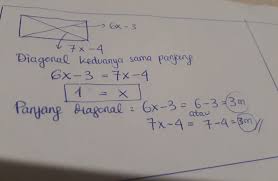 6x-3
7x-4
Diagonal keduanya sama panjang
6x-3 = 7x-4
1 = x
Panjang diagonal : 6x-3 = 6-3 = 3m
atau
7x-4 = 7-4 = 3m //